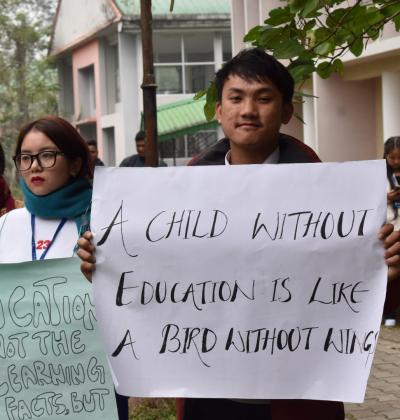 A CHILD WITHOUT
EDUCATION IS LIKE
A BIRD WITHOUT WINGS
23
UCATION
OT THE
LEARNING
FACTS, BUT